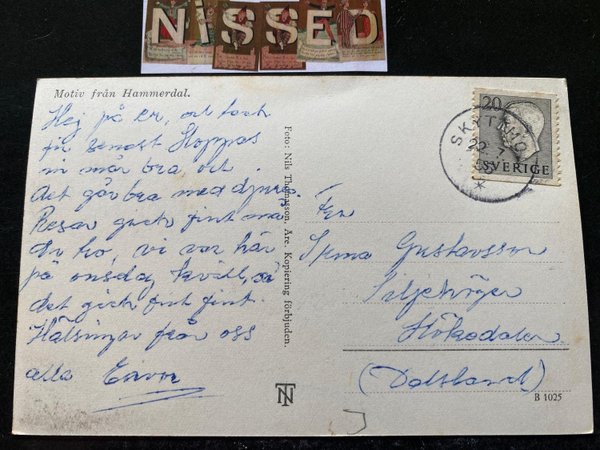 NiSSED
Motiv från Hammerdal.
Hej på er, och tack
för senast Hoppas
ni mår bra och
det går bra med djuren.
Resan gick fint må
du tro, vi var här
på onsdag kväll, så
det gick fint fint.
Hälsingar från oss
alla
Foto: Nils Thomasson, Åre. Kopiering förbjuden.
NT
20
SVERIGE
22 7
Fru
Irma Gustavsson
Höksdalen
(Dalsland)
B 1025